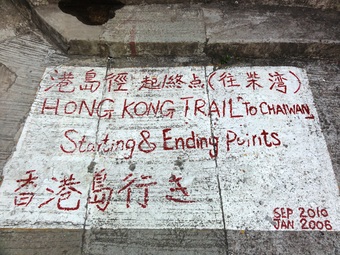 港島徑 起/終点(往柴湾)
HONG KONG TRAIL "TO CHAIWAN
Starting & Ending Points
香港島行き
SEP 2010
JAN 2006